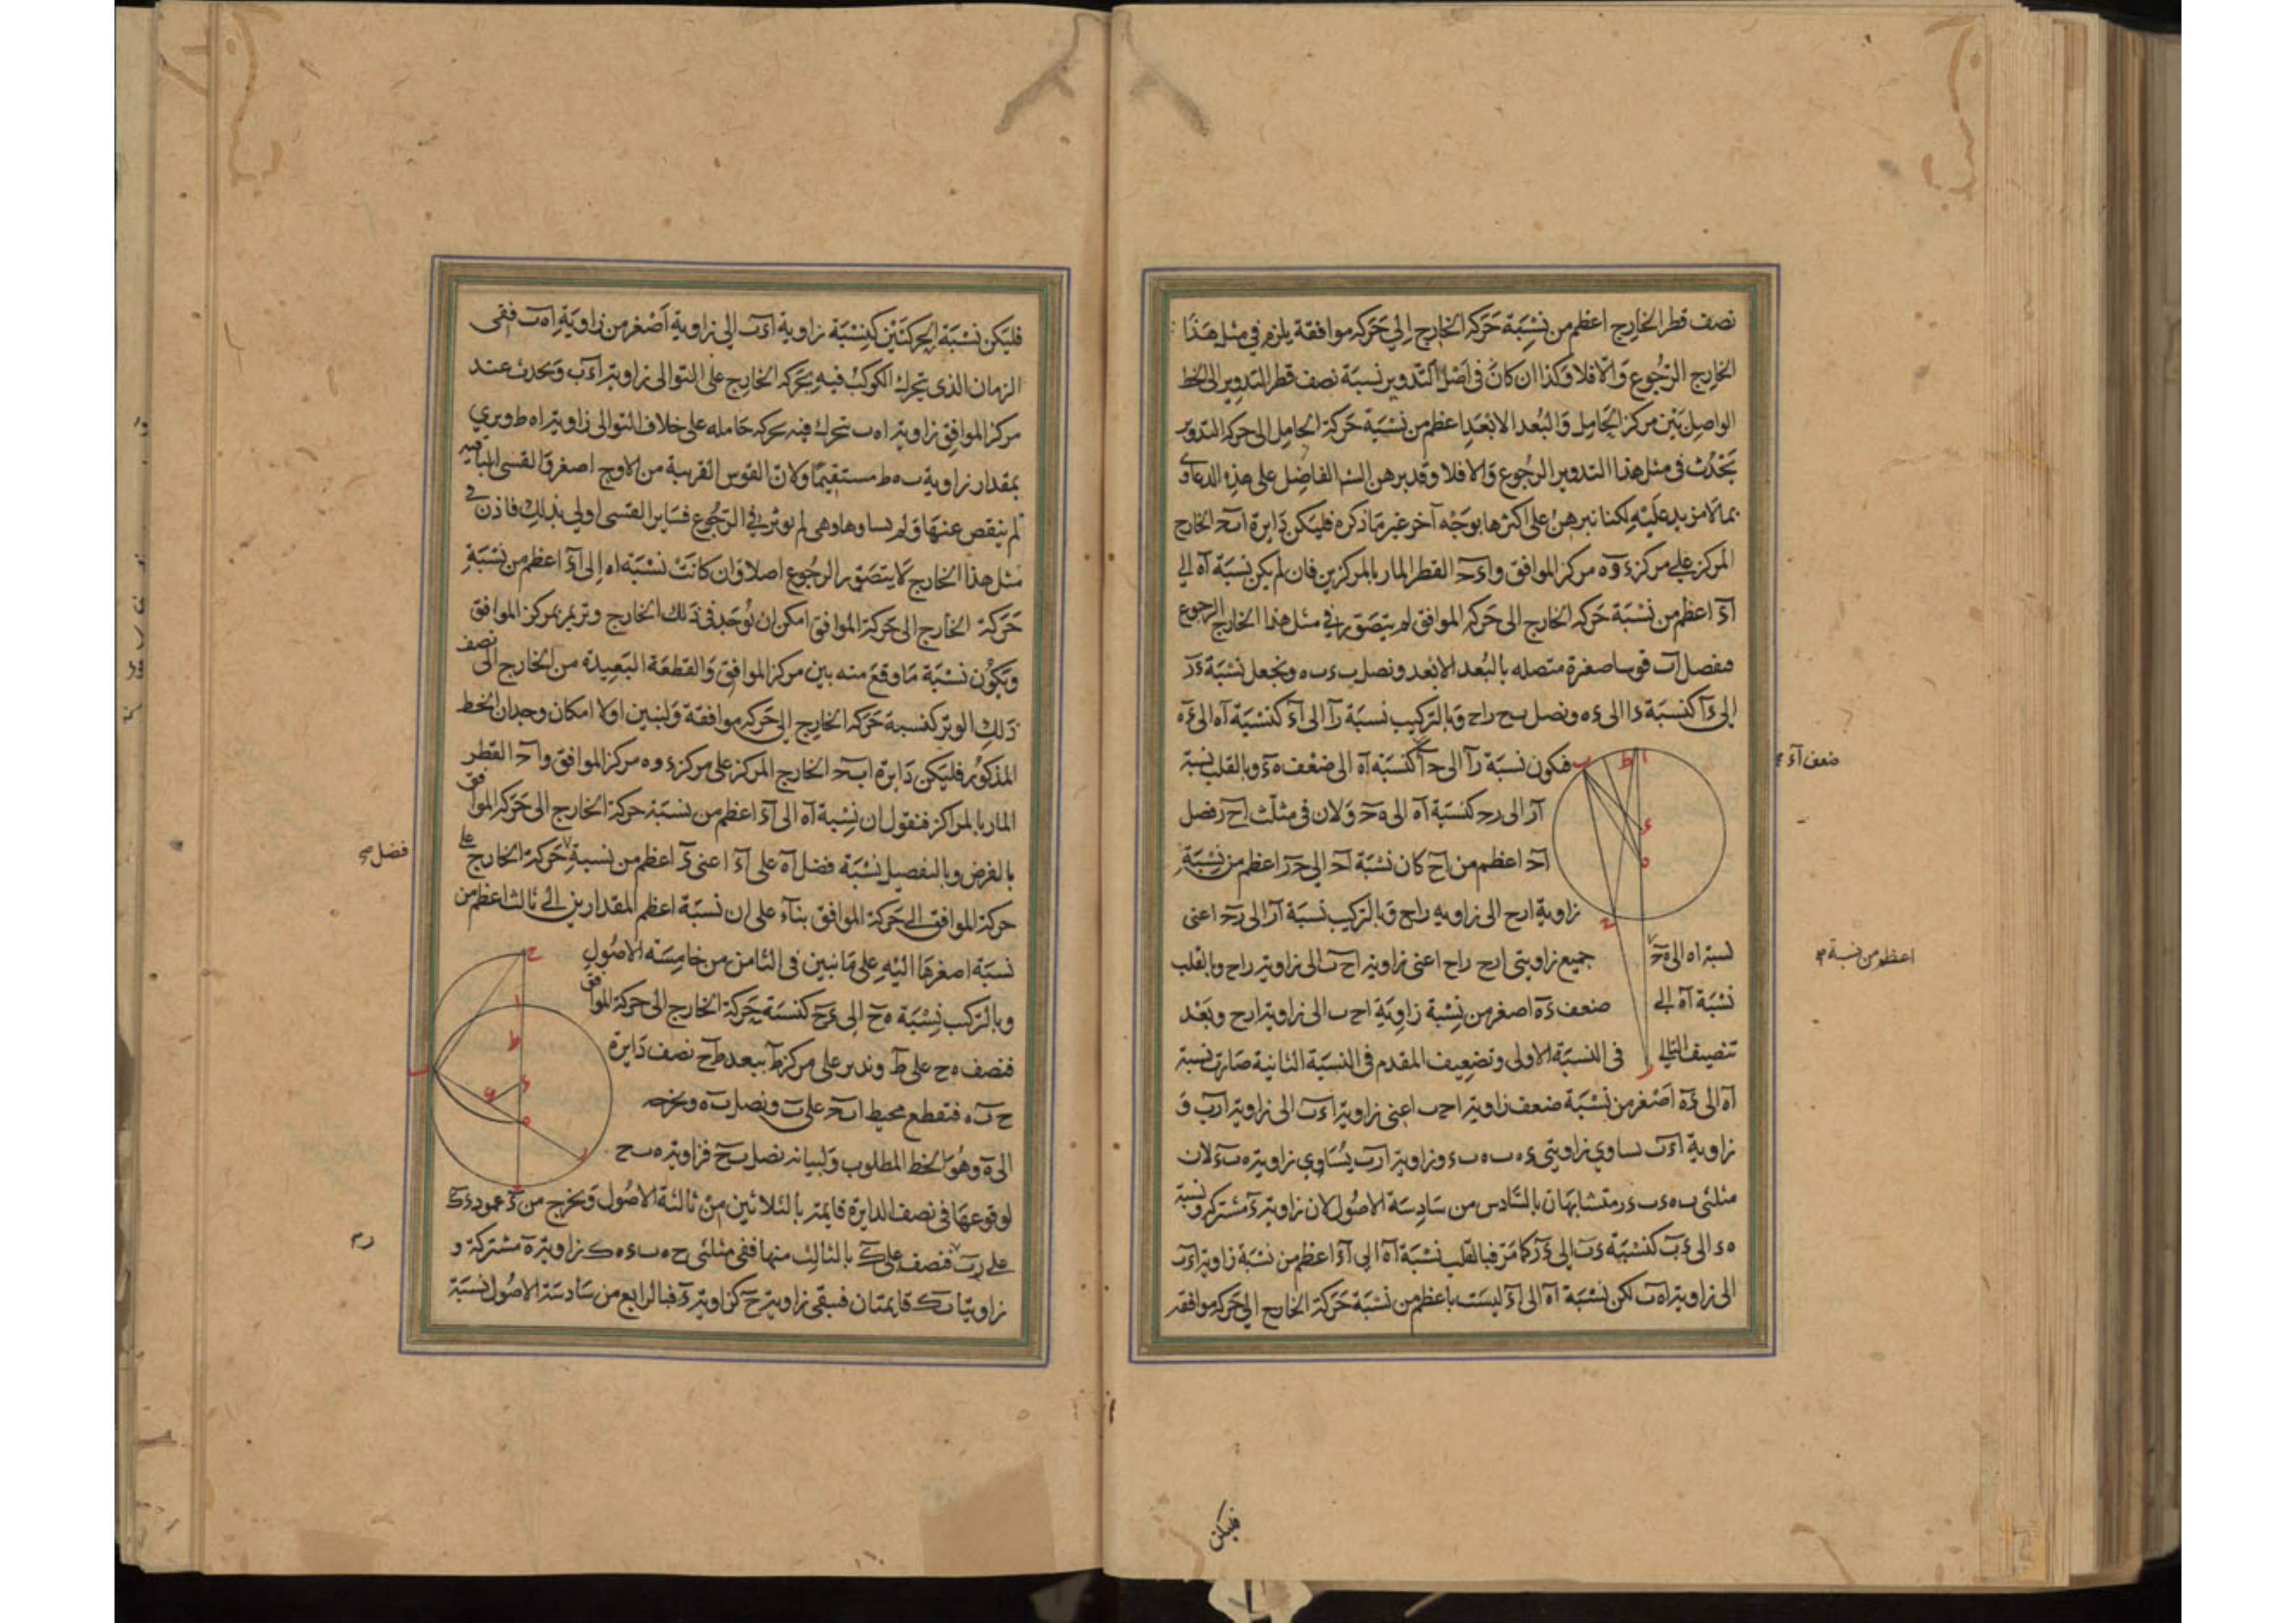 نصف قطر الخارج اعظم من نسبة حركة الخارج الى حركة موافقة يلزم في مثل هذا
الخارج الرجوع والا فلا وكذا ان كان في اصل التدوير نسبة نصف قطر التدوير الى الخط
الواصل بين مركز الحامل والبعد الابعد اعظم من نسبة حركة الحامل الى حركة التدوير
يحدث في مثل هذا التدوير الرجوع والا فلا وقد برهن الفاضل على هذه الدعاوى
بما لا مزيد عليه لكنا نبرهن على اكثرها بوجه آخر غير ما ذكره فليكن دايرة ابح الخارج
المركز على مركز ء وه مركز الموافق واءح القطر المار بالمركزين فان لم يكن نسبة اه الى
اء اعظم من نسبة حركة الخارج الى حركة الموافق لم يتصور في مثل هذا الخارج الرجوع
فنفصل اب قوسا صغيرة متصلة بالبعد الابعد ونصل بء به ونجعل نسبة ءر
الى ءا كنسبة ءا الى ءه ونصل بح راح وبالتركيب نسبة را الى اء كنسبة اه الى ءه
فكون نسبة را الى حا كنسبة اه الى ضعف هء وبالقلب نسبة
ضعف اء
ار الى رح كنسبة اه الى هح ولان في مثلث احر فضل
اح اعظم من اح كان نسبة اح الى حر اعظم من نسبة
زاوية ارح الى زاوية راح وبالتركيب نسبة ار الى رح اعنى
نسبة اه الى هح جميع زاويتي ارح راح اعنى زاوية احب الى زاوية راح وبالقلب
اعظم من نسبة
نسبة اه الى ضعف ءه اصغر من نسبة زاوية احب الى زاوية ارح وبعد
تنصيف التالي في النسبة الاولى وتضعيف المقدم في النسبة الثانية صارت نسبة
اه الى ءه اصغر من نسبة ضعف زاوية احب اعنى زاوية اءب الى زاوية ارب و
زاوية اءب تساوي زاويتي ءهب هبء وزاوية ارب يساوي زاوية هبء لان
مثلثى بهء بءر متشابهان بالسادس من سادسة الاصول لان زاوية ء مشتركة ونسبة
هء الى ءب كنسبة ءب الى ءر كما مر فبالقلب نسبة اه الى اء اعظم من نسبة زاوية اءب
الى زاوية اهب لكن نسبة اه الى اء ليست باعظم من نسبة حركة الخارج الى حركة موافقه
فليكن
فليكن نسبة الحركتين كنسبة زاوية اءب الى زاوية اصغر من زاوية اهب ففي
الزمان الذي تحرك الكوكب فيه بحركة الخارج على التوالى زاوية اءب وتحدث عند
مركز الموافق زاوية اهب تتحرك فيه بحركة حامله على خلاف التوالى زاوية اهط ويرى
بمقدار زاوية بهط مستقيما ولان القوس القريبة من الاوج اصغر والقسى الباقيه
لم ينقص عنها ولم تساوها وهى لم يوثر في الرجوع فساير القسى اولى بذلك فاذن في
مثل هذا الخارج لا يتصور الرجوع اصلا وان كانت نسبة اه الى اء اعظم من نسبة
حركة الخارج الى حركة الموافق امكن ان يوجد في ذلك الخارج وتر يمر بمركز الموافق
ويكون نسبة ما وقع منه بين مركز الموافق والقطعة البعيدة من الخارج الى نصف
ذلك الوتر كنسبة حركة الخارج الى حركة موافقة ولنبين اولا امكان وجدان الخط
المذكور فليكن دايرة ابح الخارج المركز على مركز ء وه مركز الموافق واح القطر
المار بالمراكز فنقول ان نسبة اه الى اء اعظم من نسبة حركة الخارج الى حركة الموافق
بالفرض وبالتفصيل نسبة فضل اه على اء اعنى ءه اعظم من نسبة حركة الخارج على
فضل
حركة الموافق الى حركة الموافق بناء على ان نسبة اعظم المقدارين الى ثالث اعظم من
نسبة اصغرها اليه على ما تبين في الثامن من خامسة الاصول
وبالتركيب نسبة هح الى ءح كنسبة حركة الخارج الى حركة الموافق
فنصف هح على ط وندير على مركز ط ببعد طح نصف دايرة
حبه فتقطع محيط ابح على ب ونصل به ونخرجه
الى ر وهو الخط المطلوب ولبيانه نصل بح فزاوية هبح
لوقوعها في نصف الدايرة قايمة بالثلاثين من ثالثة الاصول ونخرج من ء عمود ءك
على رب فنصف على ك بالثالث منها ففي مثلثى حهب ءهك زاوية ه مشتركة و
زاويتا ب ك قايمتان فيبقى زاوية ح كزاوية ء فبالرابع من سادسة الاصول نسبة